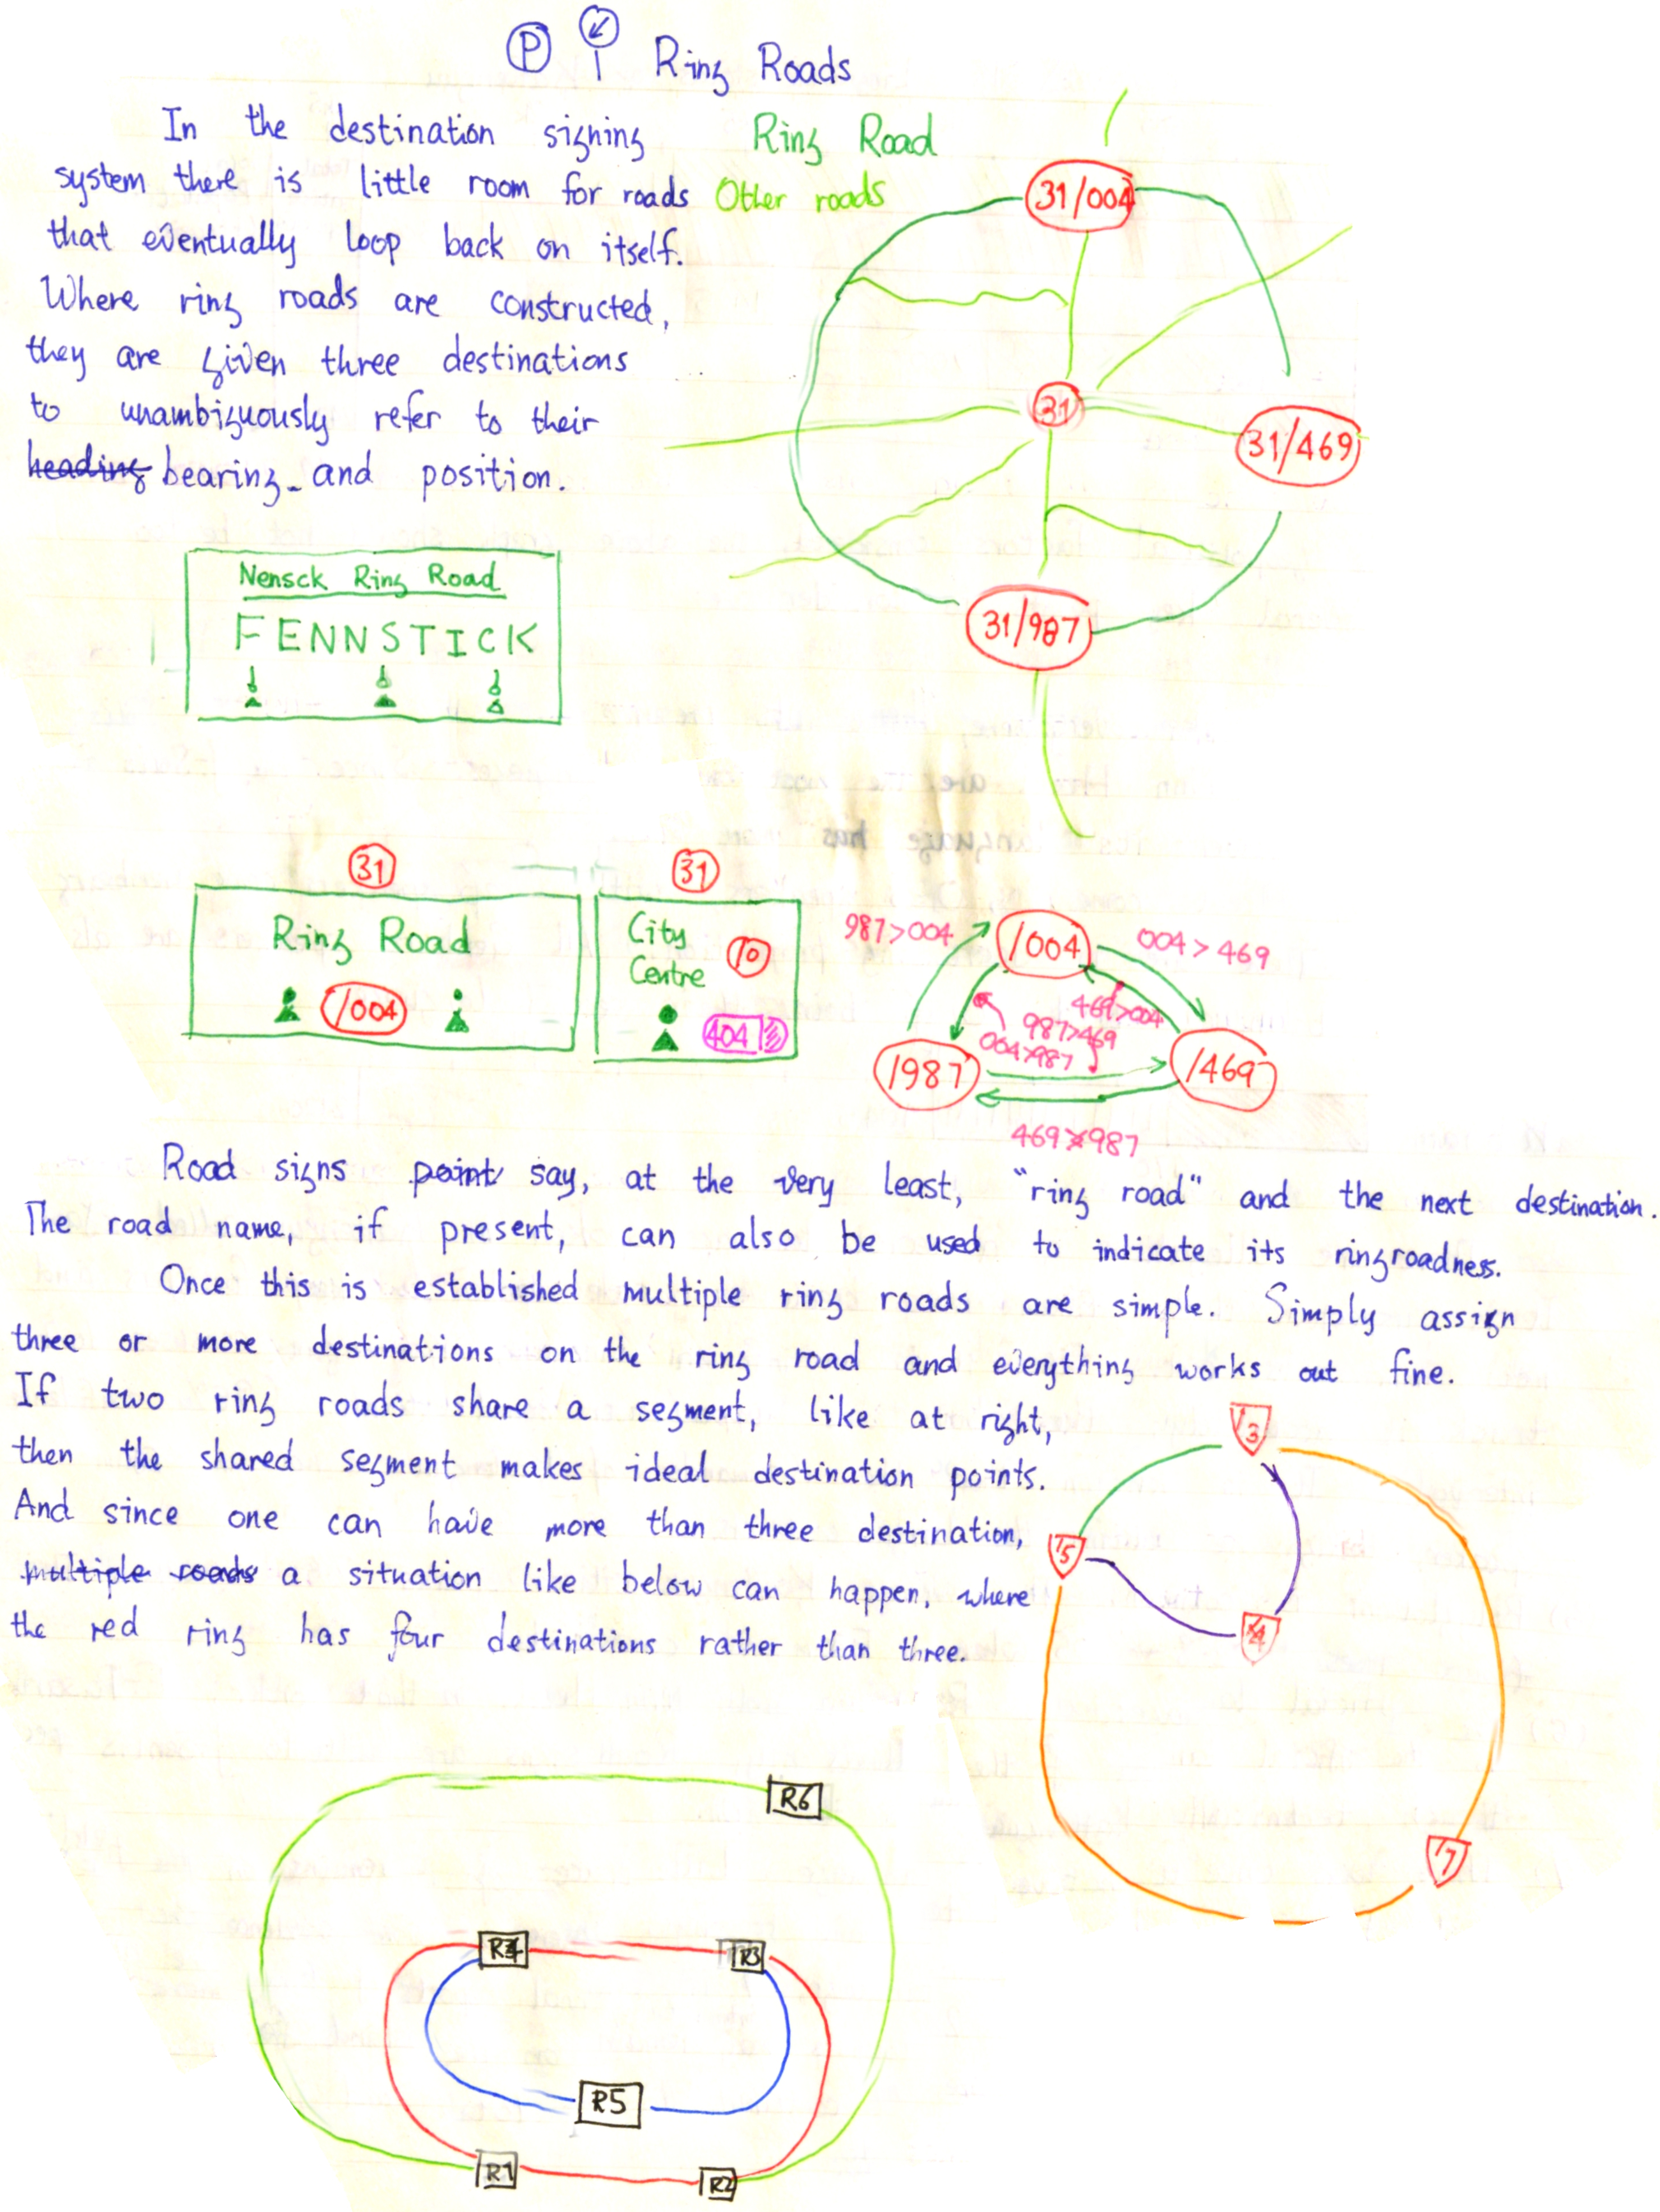 P Ring Roads
In the destination signing
system there is little room for roads
that eventually loop back on itself.
Where ring roads are constructed,
they are given three destinations
to unambiguously refer to their
heading bearing and position.
Ring Road
Other roads
31/004
31
31/469
31/987
Nensck Ring Road
FENNSTICK
31
Ring Road
/004
31
City
Centre
10
404
987>004
/004
004>469
469>004
987>469
004>987
/987
/469
469>987
Road signs point say, at the very least, "ring road" and the next destination.
The road name, if present, can also be used to indicate its ringroadness.
Once this is established multiple ring roads are simple. Simply assign
three or more destinations on the ring road and everything works out fine.
If two ring roads share a segment, like at right,
then the shared segment makes ideal destination points.
And since one can have more than three destination,
multiple roads a situation like below can happen, where
the red ring has four destinations rather than three.
/3
/5
/4
/7
R6
R4
R3
R5
R1
R2